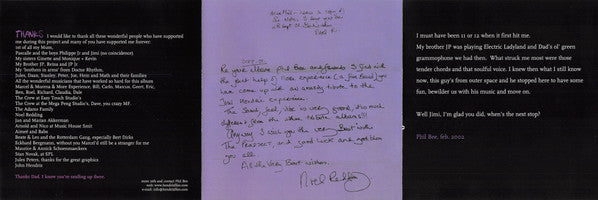 THANKS I would like to thank all these wonderful people who have supported
me during this project and many of you have supported me forever:
1st of all my Mum.
Pascalle and the boys Philippe Jr and Jimi (no coincidence)
My sisters Ginette and Monique + Kevin
My Brother JP, Reina and JP Jr.
My 'brothers in arms' from Doctor Rhythm.
Jules, Daan, Stanley, Peter, Jos, Hein and Math and their families
All the wonderful musicians that have worked so hard for this album
Marcel & Monina & More Experience, Bill, Carlo, Marcus, Geert, Eric,
Ben, Roel, Richard, Claudia, Dale
The Crew at Eazy Touch Studio's
The Crew at the Mega Peng Studio's, Dave, you crazy MF.
The Adams Family
Noel Redding
Jan and Marian Akkerman
Arnold and Nico at Music House Smit
Aimeé and Babs
Beate & Leo and the Rotterdam Gang, especially Bert Bicks
Eckhard Bergmann, without you Marcel I'd still be a stranger for me
Maurice & Annick Schoenmaeckers
Stan Novak, at SPL
Jules Peters, thanks for the great graphics
John Hendrix
Thanks Dad, I know you're smiling up there.
more info and contact Phil Bee
Phil Bee and friends
the best help of More experience
come up with an amazing tribute to the
Jimi Hendrix experience.
The Sound, feel, vibe is very good, it's much
different from the other tribute albums!!!
Anyway I wish you the very Best with
the Project, and good luck and god bless
you all.
All the very Best wishes,
Noel Redding
I must have been 11 or 12 when it first hit me.
My brother JP was playing Electric Ladyland and Dad's ol' green
grammophone we had then. What struck me most were those
tender chords and that soulful voice. I knew then what I still know
now, this guy's from outer space and he stopped here to have some
fun, bewilder us with his music and move on.
Well Jimi, I'm glad you did, when's the next stop?
Phil Bee, feb. 2002